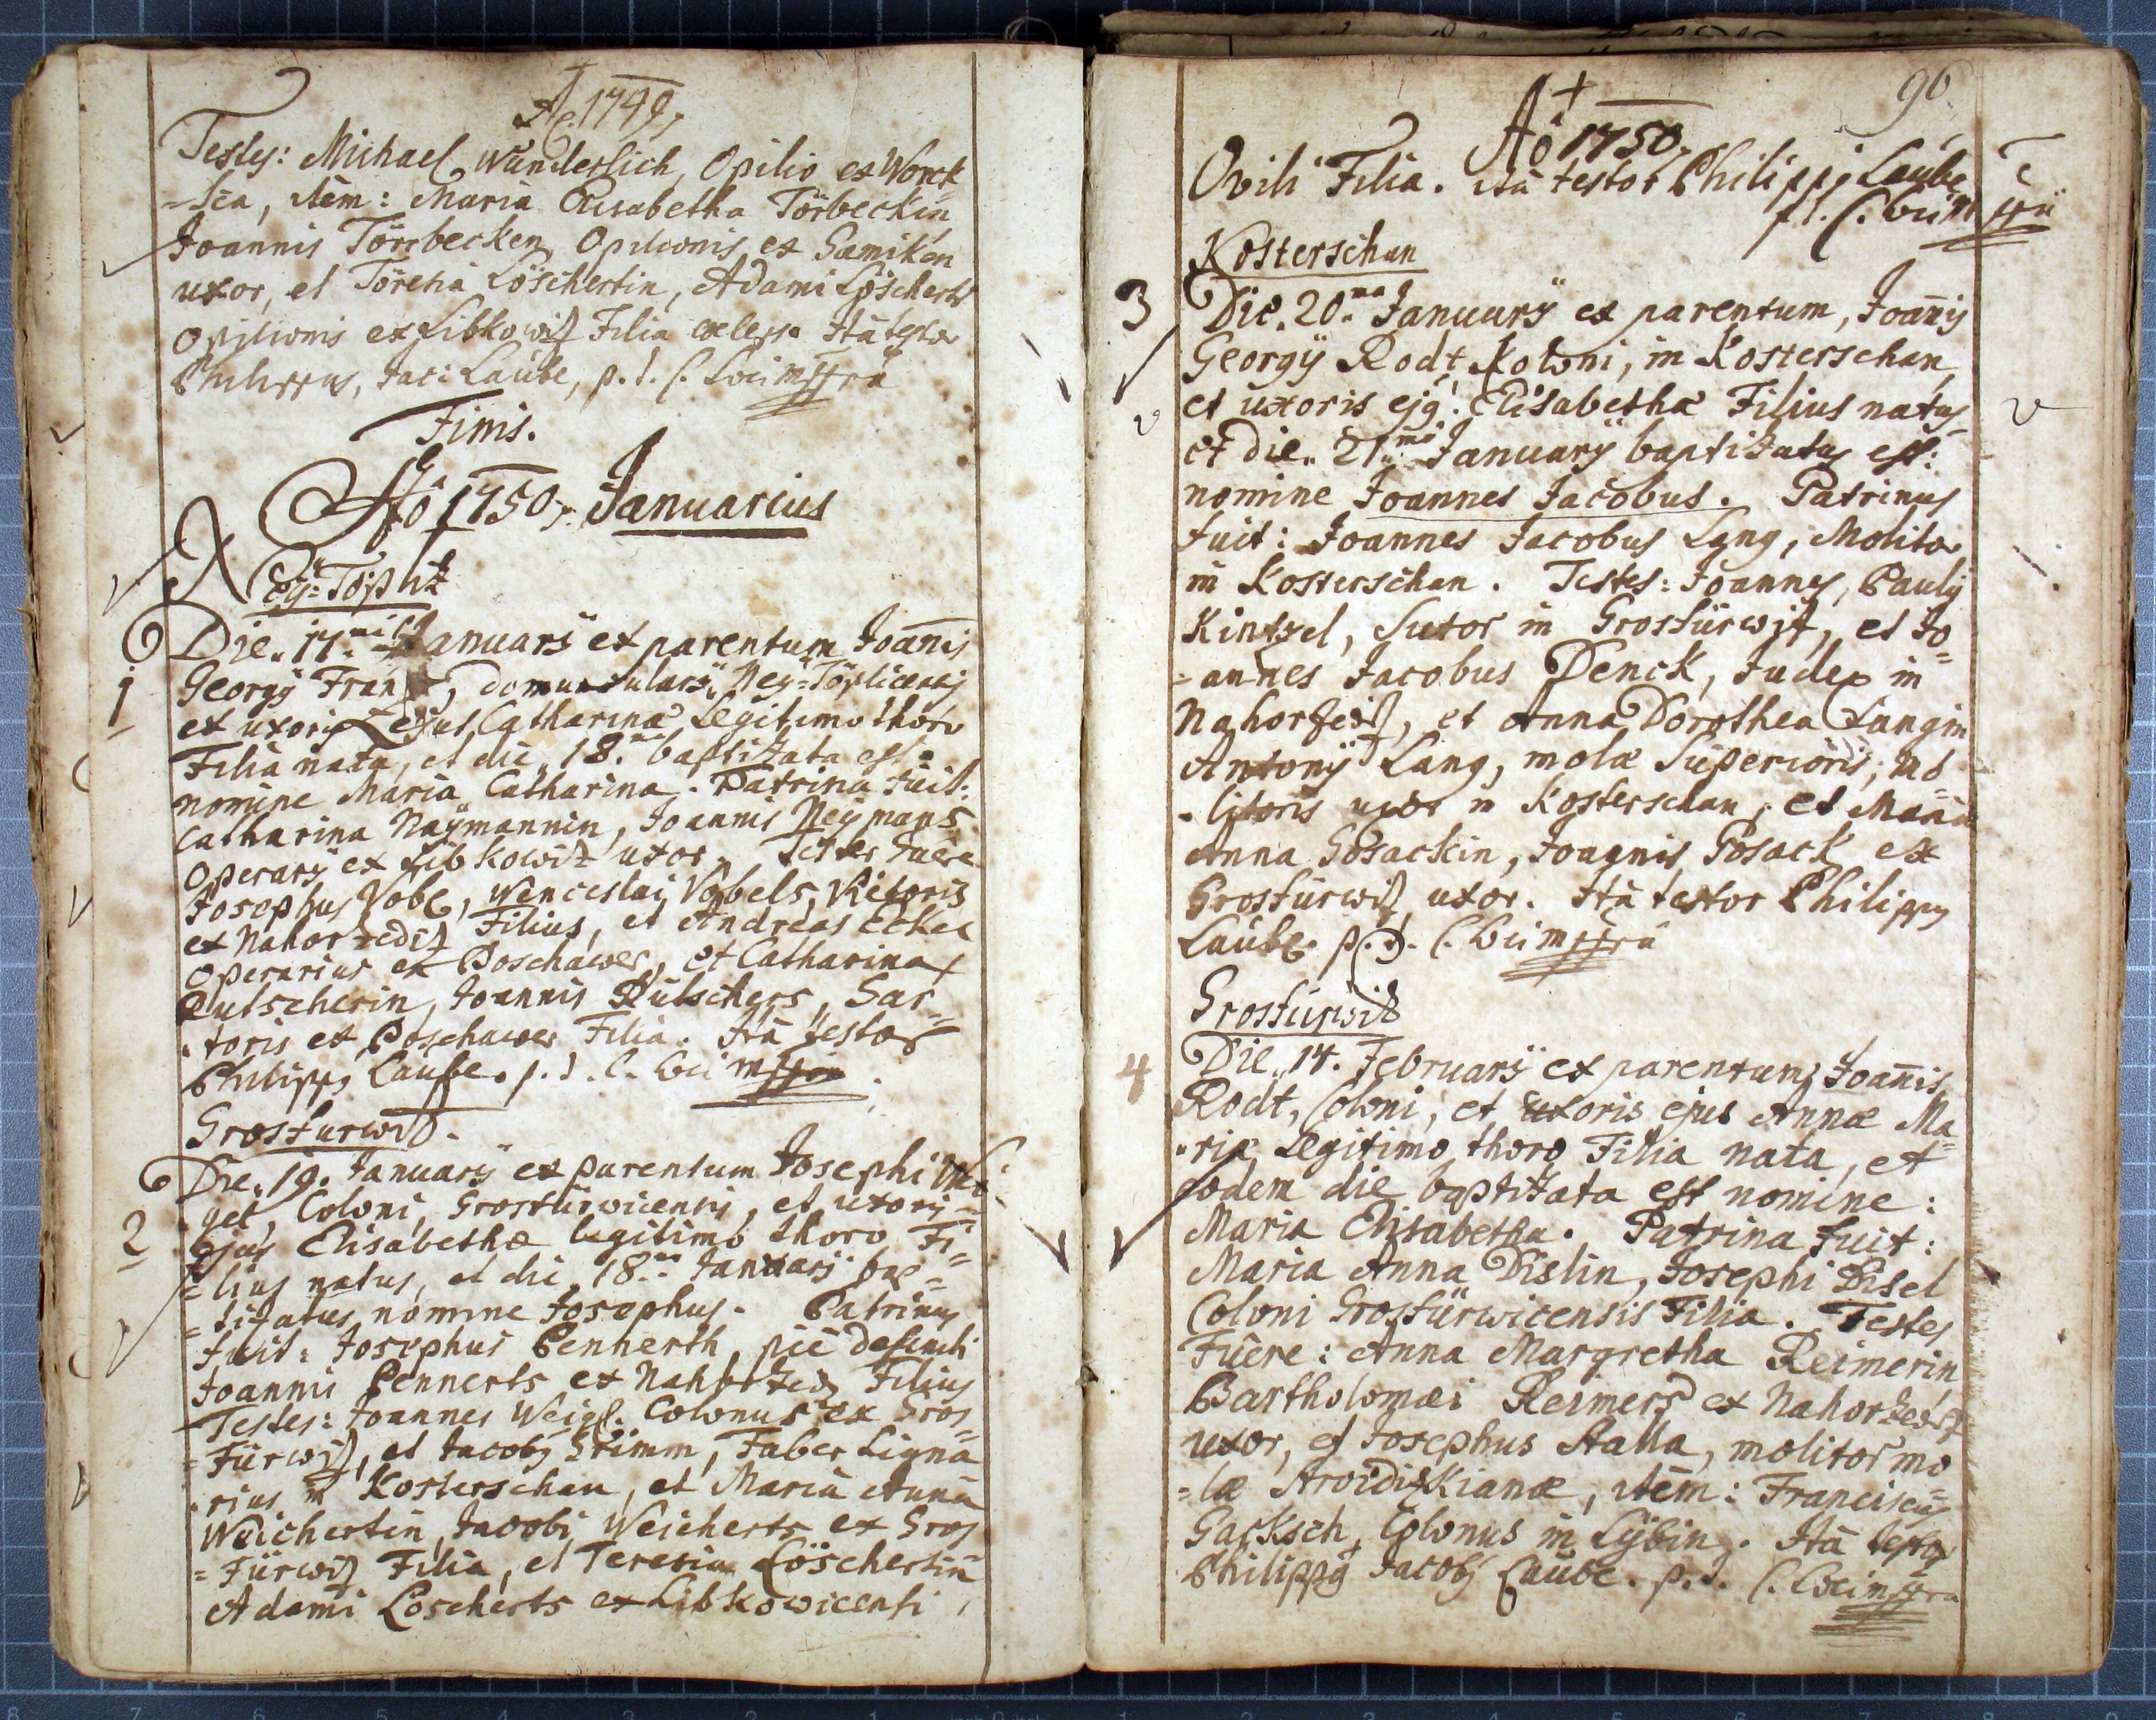 Ao 1749
Testes: Michael Wunderlich, Opilio ex Worck
=Lea, item: Maria Elisabetha Törbeckin
Joannis Törcbecken Opilionis ex Gamiken
uxor, et Töretia Löschertin, Adami Löscherts
Opilionis ex Libkowitz Filia cælebs. Ità testor
Philippus, Jaci Laube, p.t. C. Lcimppria
Finis.
Ao 1750. Januarius
Ney=Töplitz
Die 17ma Januarÿ ex parentum Joānis
1
Georgÿ Frantz, domuncularÿ Ney=Töplicensis
et uxoris ejus Catharinæ Legitimo thoro
Filia nata, et die 18. baptizata est
nomine Maria Catharina. Patrina fuit:
Catharina Naÿmannin, Joannis Neÿmans
Operarÿ ex Libkowitz uxor. Testes fuêre
Josephus Vobel, Wenceslai Vobels, Vietoris
ex Nahorzeditz Filius, et Andreas Eckel
Operarius ex Poschawer, et Catharina
Rutscherin, Joannis Rutschers, Sar=
=toris ex Poschawer Filia. Ità testor
Philippus Laube. p. t. C. Lcimppria
Grosfurwitz.
Die 19. Januarÿ ex parentum Josephi
gel, Coloni Grosfürwicensis, et uxoris
2
Ejus Elisabethæ legitimo thoro Fi=
=lius natus, et die 18. Januarÿ bap=
=tizatus nomine Josephus. Patrinus
fuit: Josephus Pennerth, piè defuncti
Joannis Pennerts ex Nahorzediz Filius
Testes: Joannes Weigl. Colonus ex Gros=
=fürwitz, et Jacobus Grimm, Faber Ligna
=rius in Kosterschan, et Maria Anna
Weichertin, Jacobi Weicherts ex Gros
=fürwitz Filia, et Teresia Löschertin
Adami Löscherts ex Libkowicensi
96.
Ao 1750.
Ovili Filia. Ità testor Philippus Laube
p.t. C. Lcimppria
Kosterschan
3
Die 20ma Januarÿ ex parentum, Joānis
Georgÿ Rodt Koloni, in Kosterschan
et uxoris ejg: Elisabethæ Filius natus
et die 21ma Januarÿ baptizatus est:
nomine Joannes Jacobus. Patrinus
fuit: Joannes Jacobus Lang, Molitor
in Kosterschan. Testes: Joannes, Paulÿ
Kintzel, Sutor in Grosfürwitz, et Jo=
=annes Jacobus Denck, Judex in
Nahorzeditz, et Anna Dorothea Langin
Antonÿ Lang, molæ Superioris, mo=
=litoris uxor in Kosterschan, et Maria
Anna Posackin, Joannis Posack ex
Grosfürwitz uxor. Ità testor Philippus
Laube p.t. C. Lcimppria
Grosfurwitz
4
Die 14. Februarÿ ex parentum, Joānis
Rodt, Coloni, et uxoris ejus Annæ Ma=
=riæ Legitimo thoro Filia nata, et
eodem die baptizata est nomine:
Maria Elisabetha. Patrina fuit:
Maria Anna Dislin, Josephi Disel
Coloni Grosfürwicensis Filia. Testes
Fuêre: Anna Margretha Reimerin
Bartholomæi Reimers ex Nahorzeditz
uxor, et Josephus Stalla, molitor mo=
=læ Stroidizkianæ, item: Franciscus
Gacksch, Colonus in Lÿbin. Ità testor
Philippus Jacobus Laube. p. t. C. Lcimppria